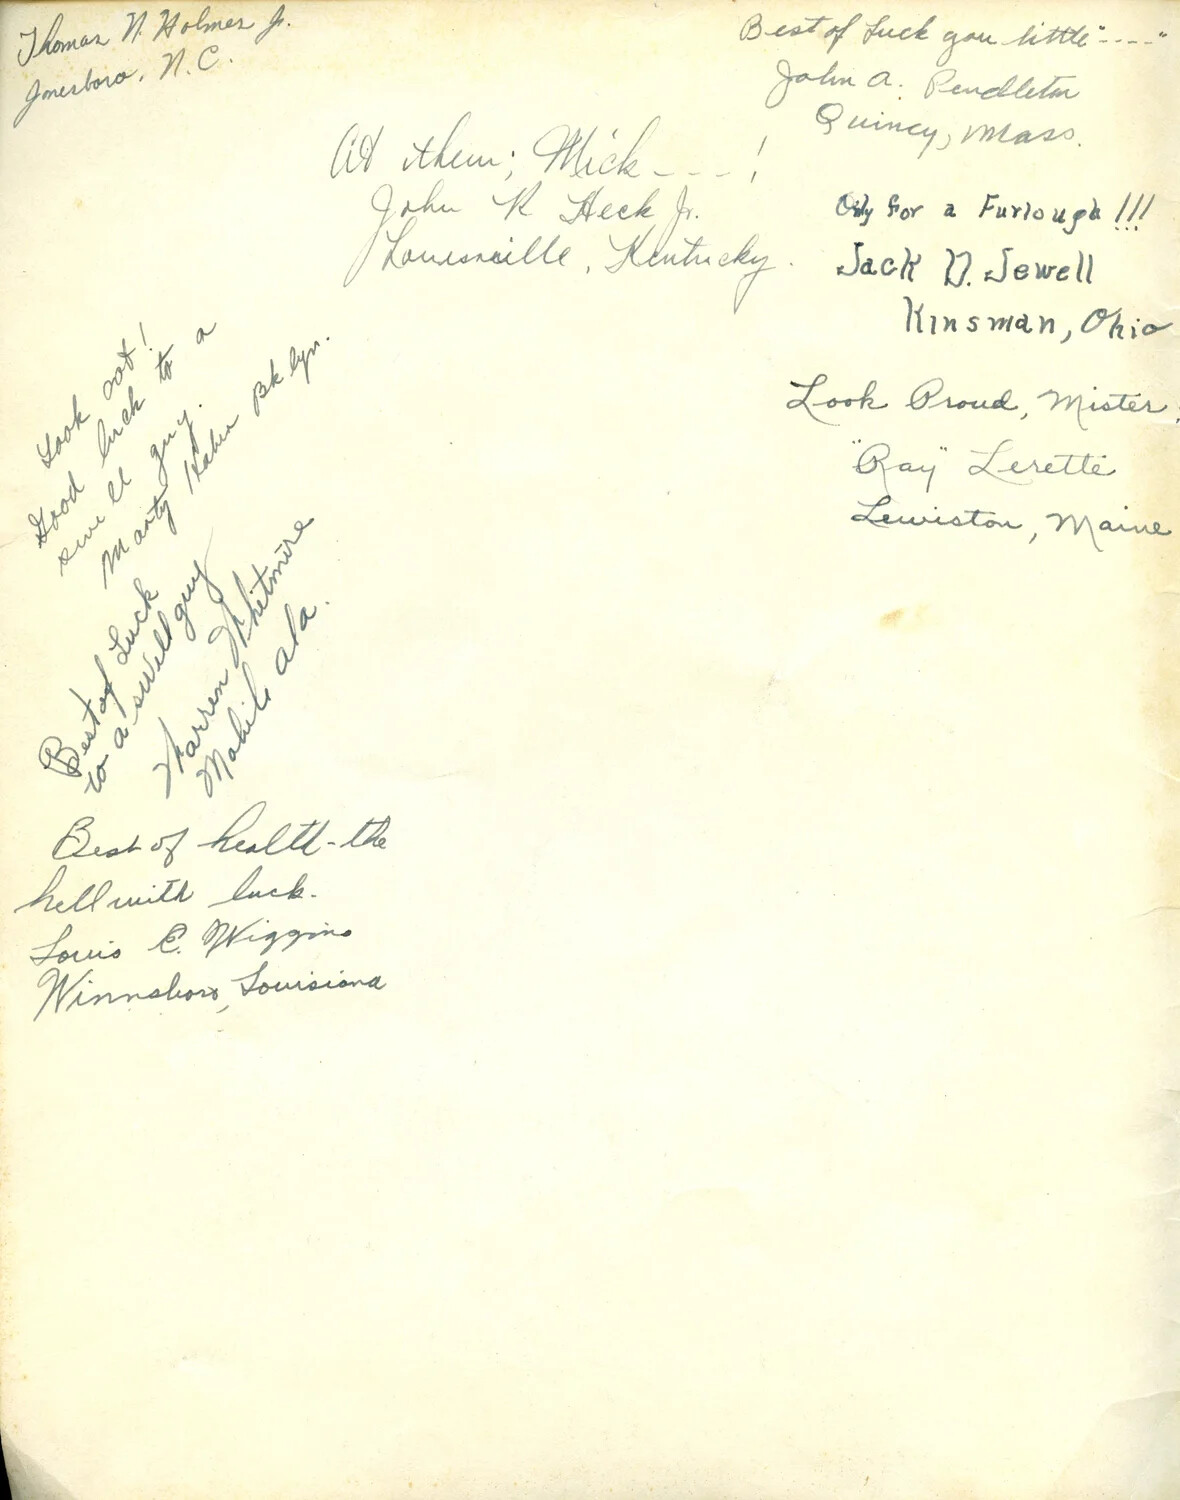 Thomas N. Holmes Jr.
Jonesboro, N.C.
Best of Luck you little "----"
John A. Pendleton
Quincy, Mass.
At them; Mick ---!
John R Heck Jr.
Louisville, Kentucky.
Only for a Furlough!!!
Jack D. Jewell
Kinsman, Ohio
Look Proud, Mister
"Ray" Lerette
Lewiston, Maine
Look out!
Good luck to a
swell guy.
Marty Hahn Bklyn.
Best of Luck
to a swell guy
Warren Whitmire
Mobile Ala.
Best of health - the
hell with luck.
Louis E. Wiggins
Winnsboro, Louisiana